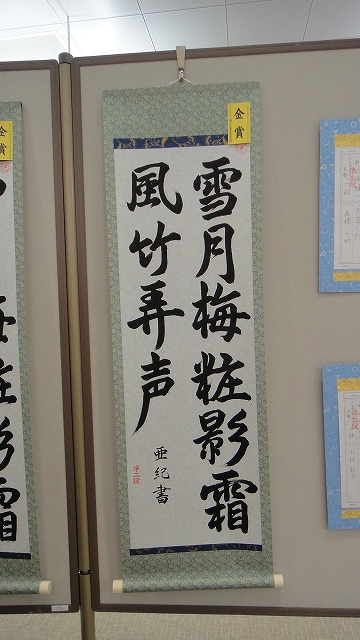 雪月梅粧影霜
風竹弄声
亜紀書
準二段
金賞
金賞
粧影霜